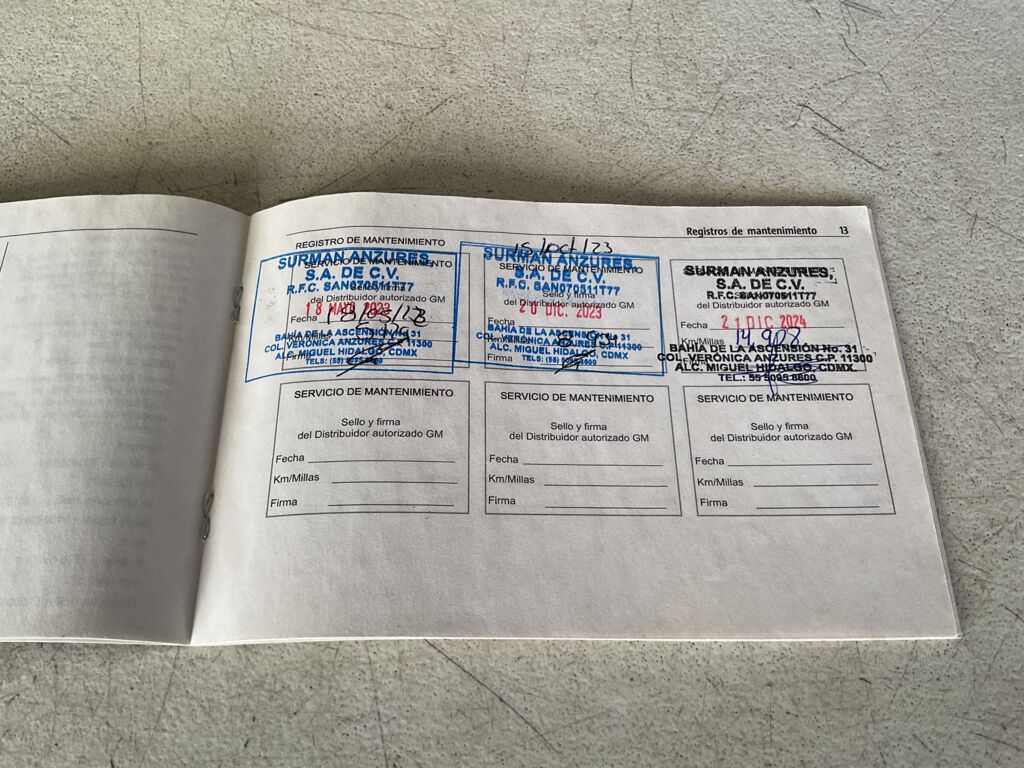 Registros de mantenimiento 13
REGISTRO DE MANTENIMIENTO
SERVICIO DE MANTENIMIENTO
SURMAN ANZURES
S.A. DE C.V.
R.F.C. SAN070511T77
Sello y firma
del Distribuidor autorizado GM
18 MAYO 2023
Fecha
BAHÍA DE LA ASCENSIÓN No 31
COL. VERÓNICA ANZURES C.P. 11300
ALC. MIGUEL HIDALGO, CDMX
TELS: (55) 5095 8600
15/oct/23
SERVICIO DE MANTENIMIENTO
SURMAN ANZURES
S.A. DE C.V.
R.F.C. SAN070511T77
Sello y firma
del Distribuidor autorizado GM
20 DIC. 2023
Fecha
BAHÍA DE LA ASCENSIÓN No 31
COL. VERÓNICA ANZURES C.P. 11300
ALC. MIGUEL HIDALGO, CDMX
Firma
TELS: (55) 5095 8600
SURMAN ANZURES,
S.A. DE C.V.
R.F.C. SAN070511T77
Fecha 21 DIC. 2024
Km/Millas 14,908
BAHÍA DE LA ASCENSIÓN No. 31
COL. VERÓNICA ANZURES C.P. 11300
ALC. MIGUEL HIDALGO, CDMX.
TEL.: 55 5095 8600
SERVICIO DE MANTENIMIENTO
Sello y firma
del Distribuidor autorizado GM
Fecha
Km/Millas
Firma
SERVICIO DE MANTENIMIENTO
Sello y firma
del Distribuidor autorizado GM
Fecha
Km/Millas
Firma
SERVICIO DE MANTENIMIENTO
Sello y firma
del Distribuidor autorizado GM
Fecha
Km/Millas
Firma